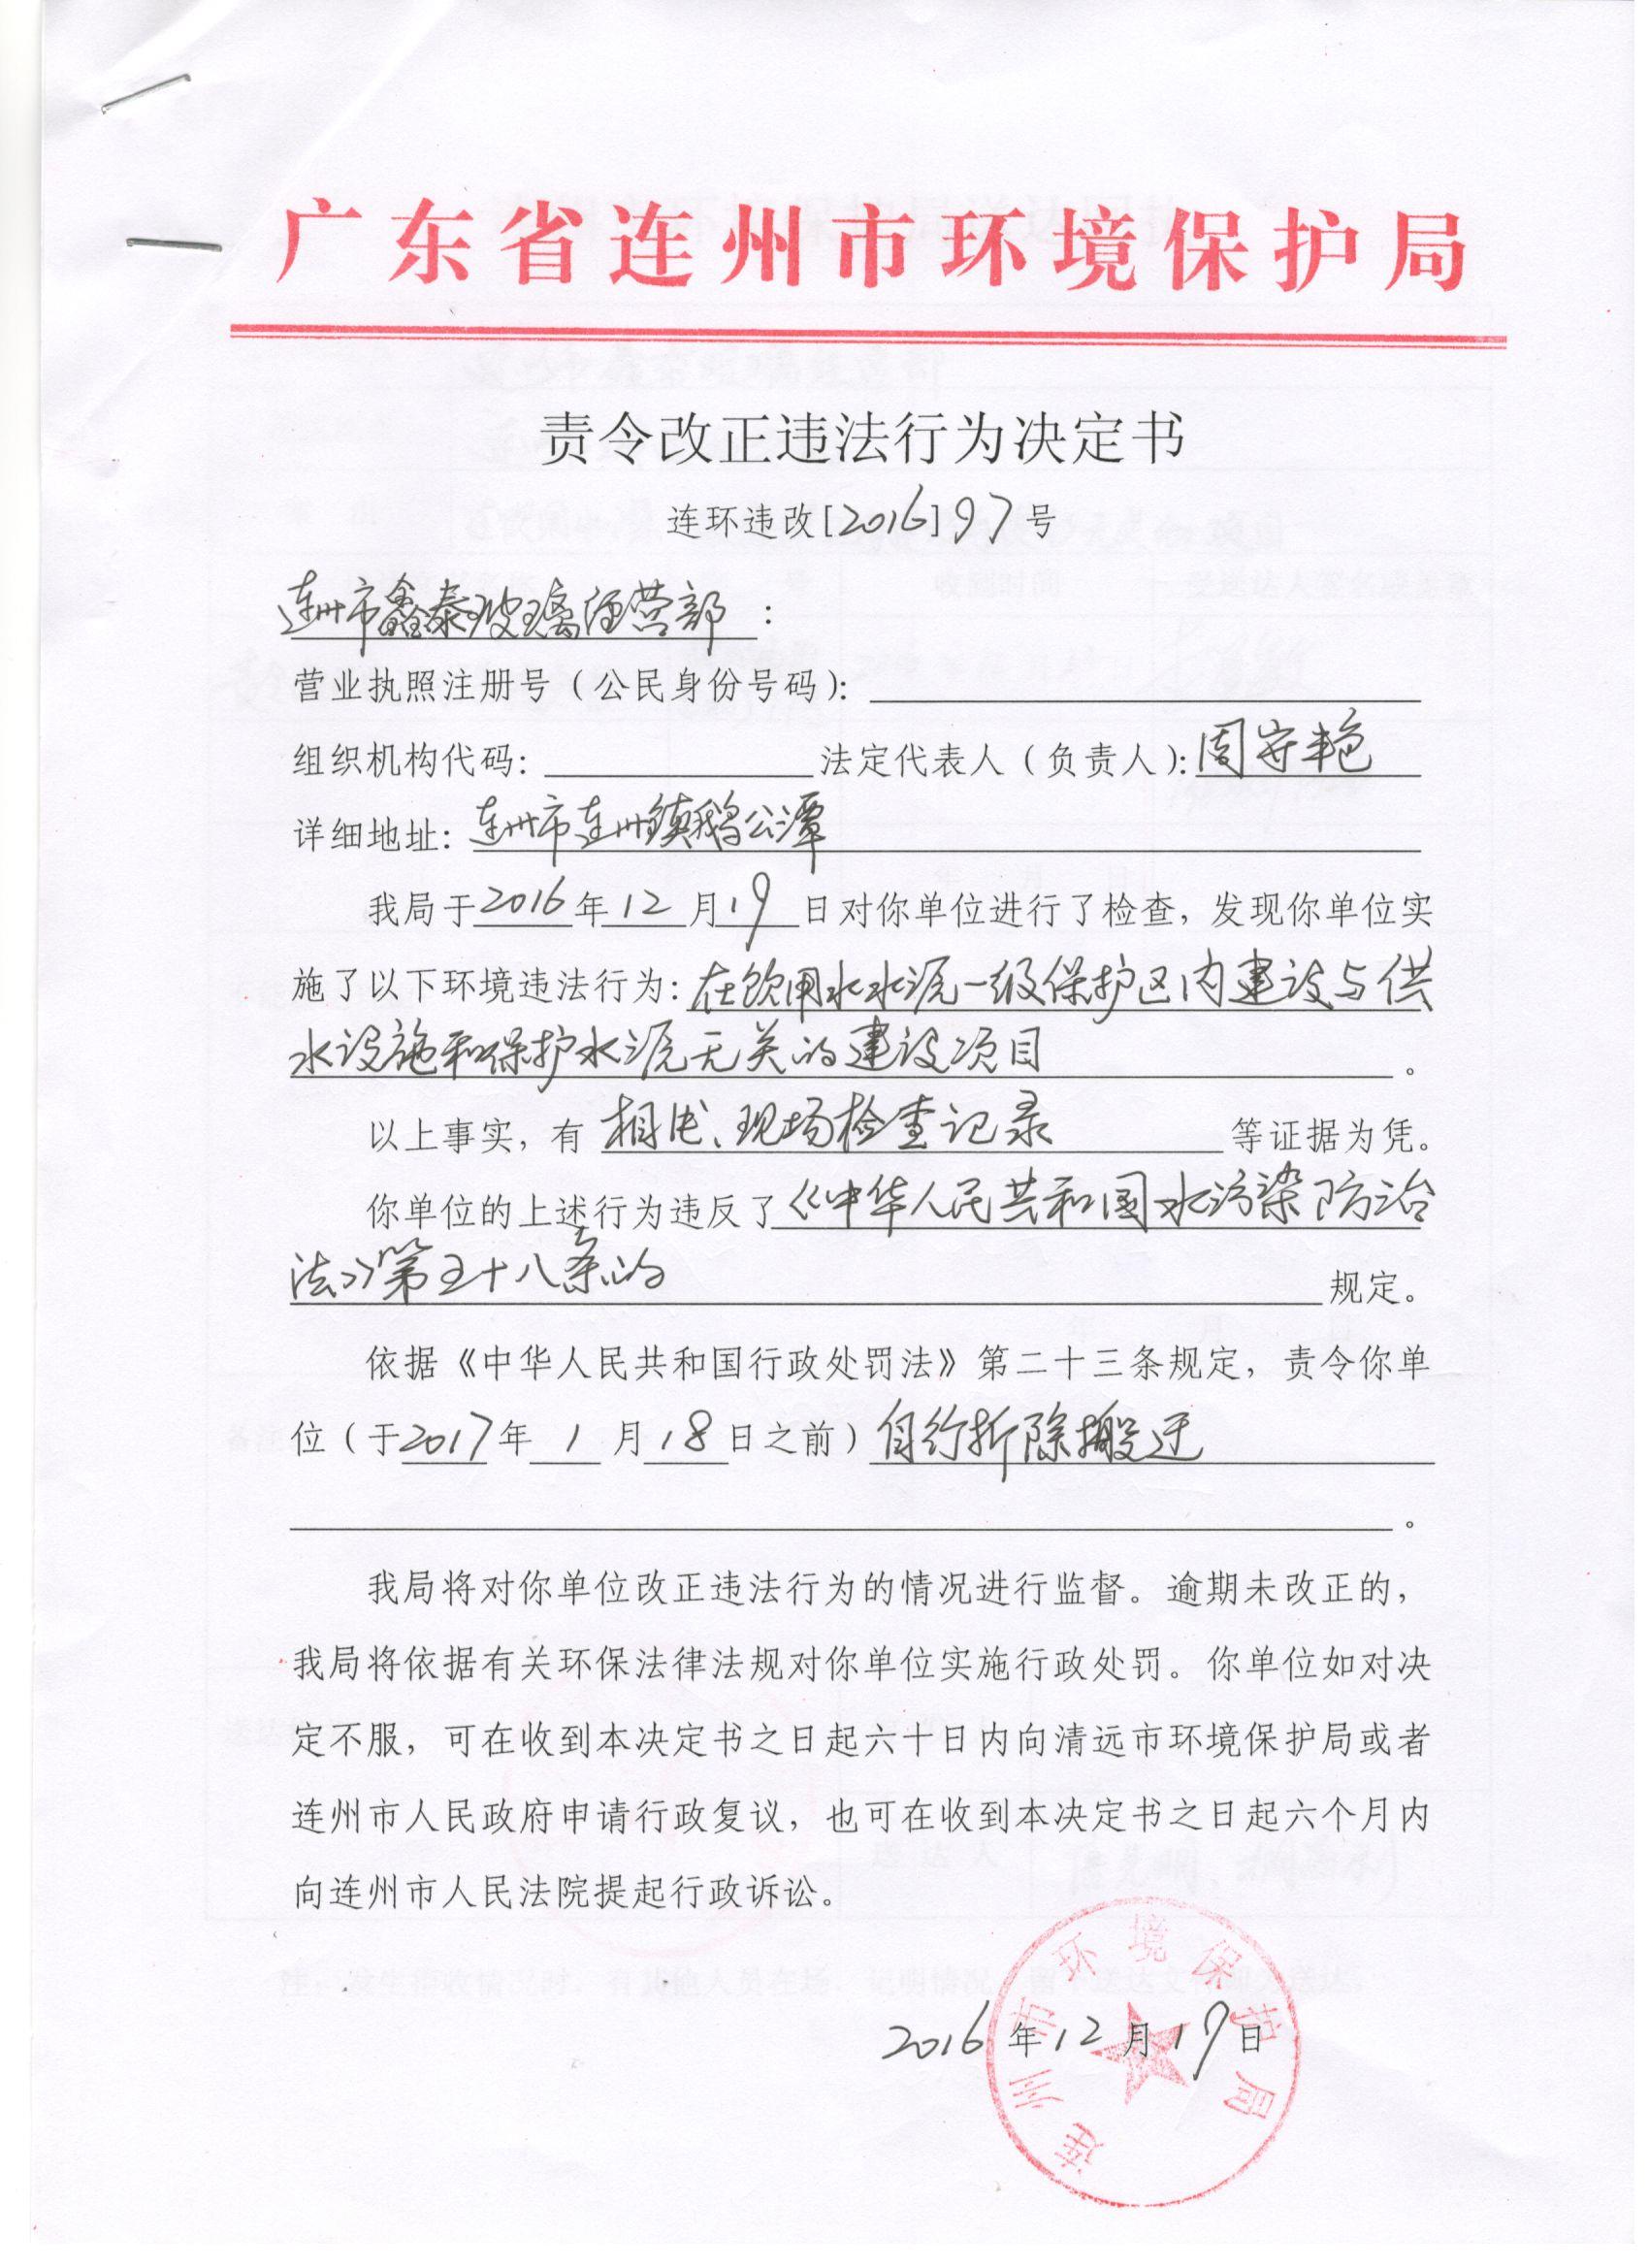 广东省连州市环境保护局
责令改正违法行为决定书
连环违改[2016]97号
连州市鑫泰玻璃经营部：
营业执照注册号（公民身份号码）：
组织机构代码：法定代表人（负责人）：周安艳
详细地址：连州市连州镇鹅公潭
我局于2016年12月19日对你单位进行了检查，发现你单位实
施了以下环境违法行为：在饮用水水源一级保护区内建设与供
水设施和保护水源无关的建设项目。
以上事实，有相片、现场检查记录等证据为凭。
你单位的上述行为违反了《中华人民共和国水污染防治
法》第五十八条的规定。
依据《中华人民共和国行政处罚法》第二十三条规定，责令你单
位（于2017年1月18日之前）自行拆除搬迁
。
我局将对你单位改正违法行为的情况进行监督。逾期未改正的，
我局将依据有关环保法律法规对你单位实施行政处罚。你单位如对决
定不服，可在收到本决定书之日起六十日内向清远市环境保护局或者
连州市人民政府申请行政复议，也可在收到本决定书之日起六个月内
向连州市人民法院提起行政诉讼。
2016年12月19日
连州市环境保护局